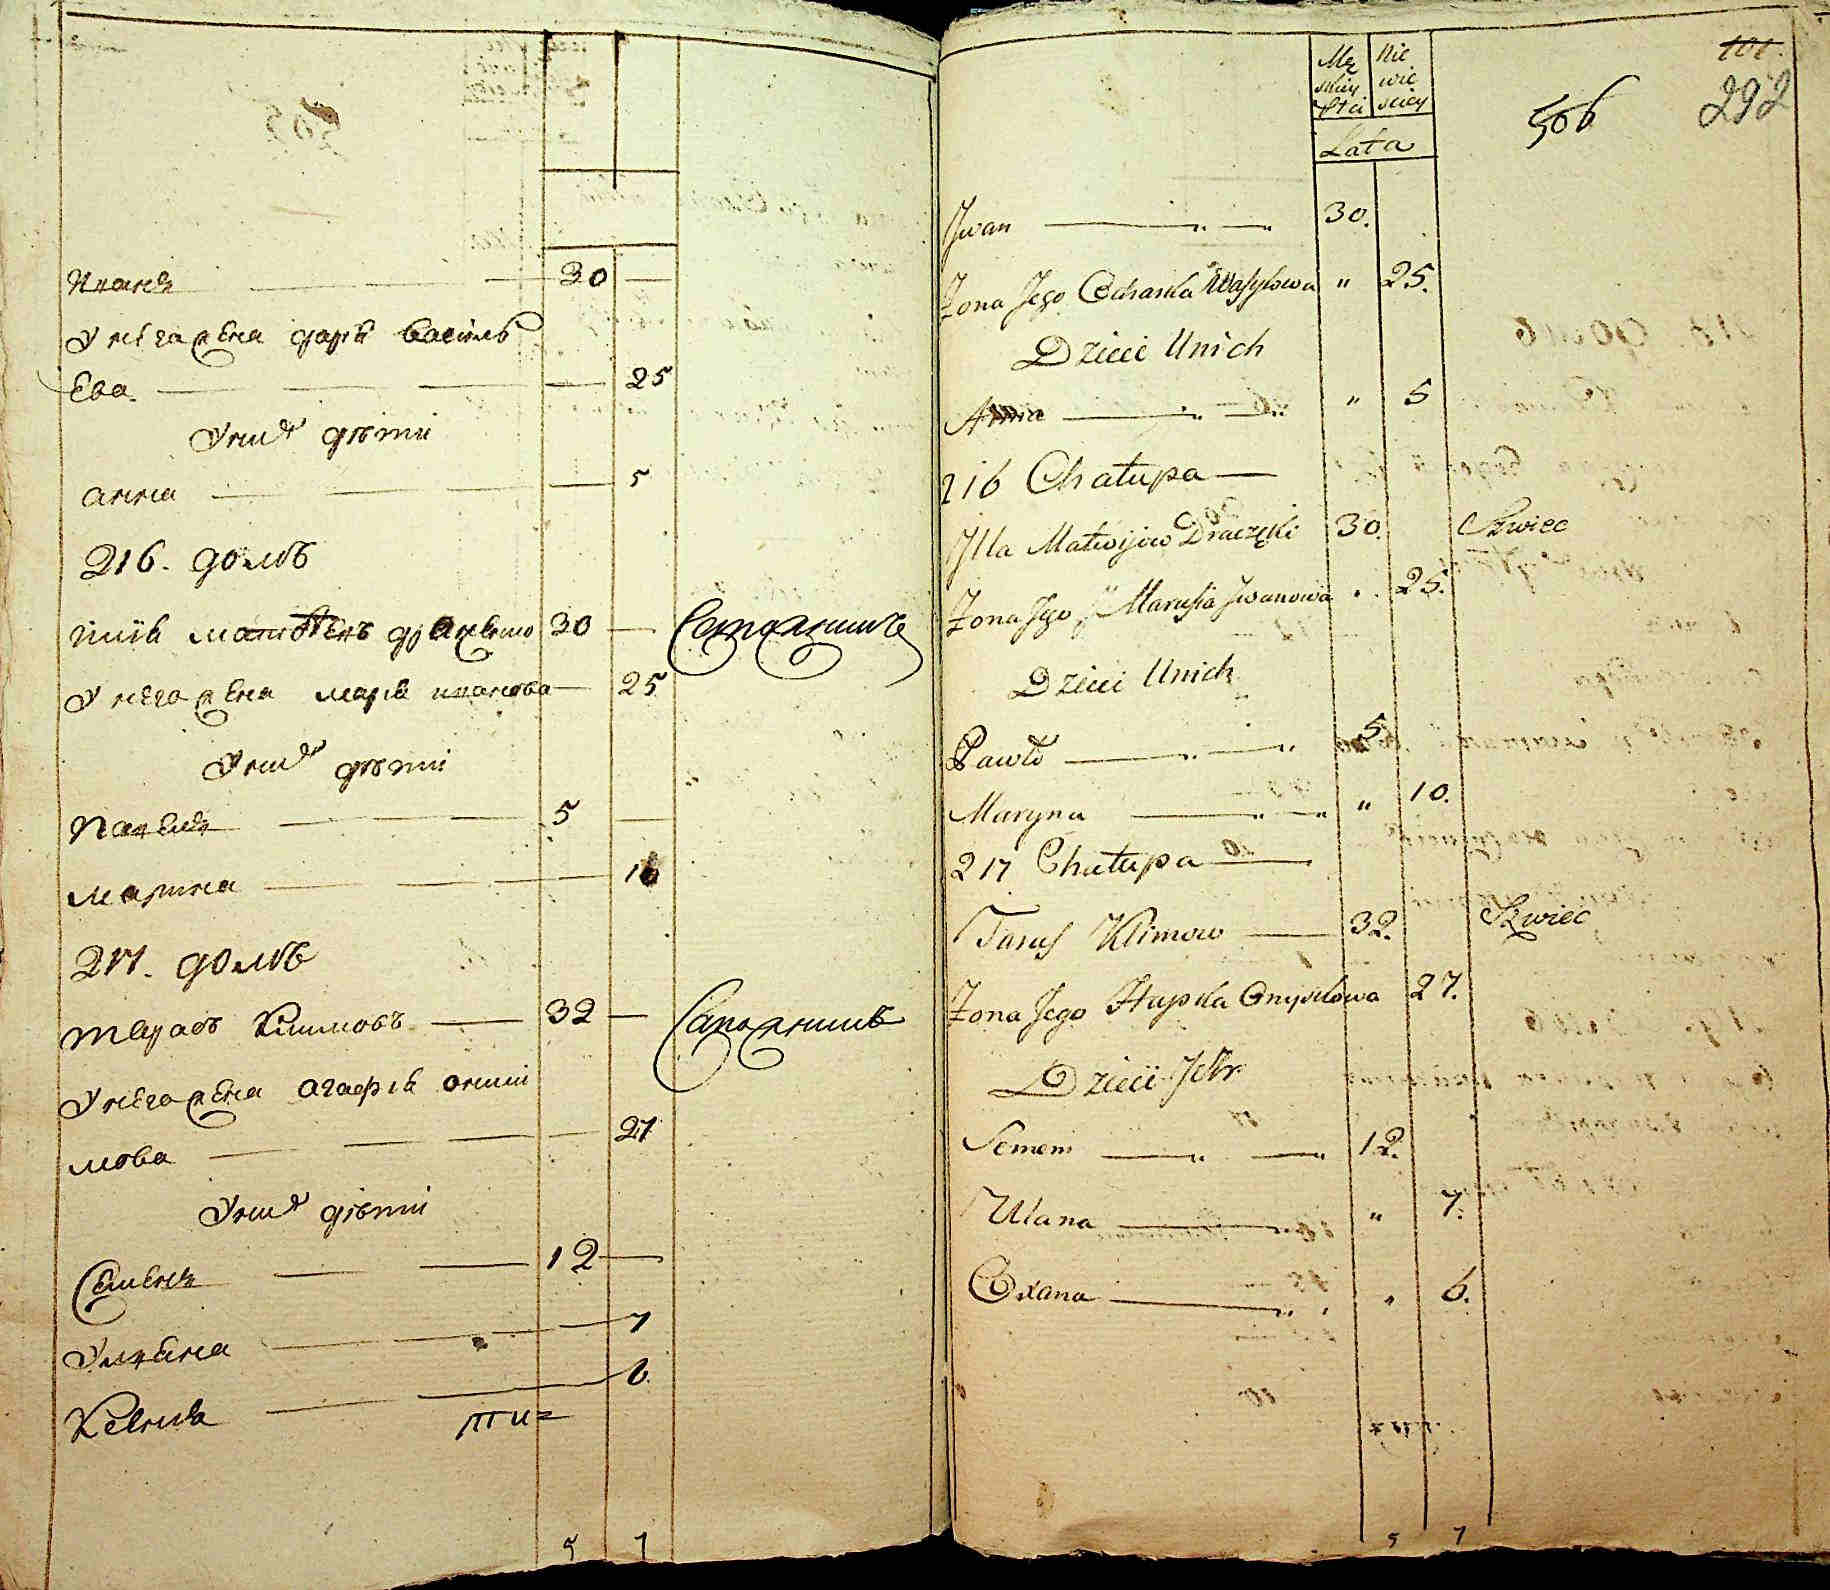 Иванъ 30
У него жена дарꙗ василь
Ева 25
У нихъ дѣти
анна 5
216. домъ
илїꙗ матвѣевъ 30 Сапожникъ
У него жена марꙗ иванова 25
У нихъ дѣти
Павелъ 5
марина 10
217. домъ
тарасъ климовъ 32 Сапожникъ
У него жена агафїꙗ они
мова 27
У нихъ дѣти
Семенъ 12
Ульꙗна 7
Ксениꙗ 6
5 7
Mę skiey Płci
Nie wie sciey
Lata
506
101.
292
Jwan 30.
Zona Jego Wasylowa " 25.
Dzieci Unich
Anna " 5
216 Chałupa
Jlla Matwijow Draczęki 30. Szwiec
Zona Jego Marusia Jwanowa 25.
Dzieci Unich
Pawło 5
Maryna " 10.
217 Chałupa
Taras Klimow 32. Szwiec
Zona Jego Hapka Onyskowa 27.
Dzieci Ich
Semen 12.
Ulana " 7.
Oxana " 6.
5 7